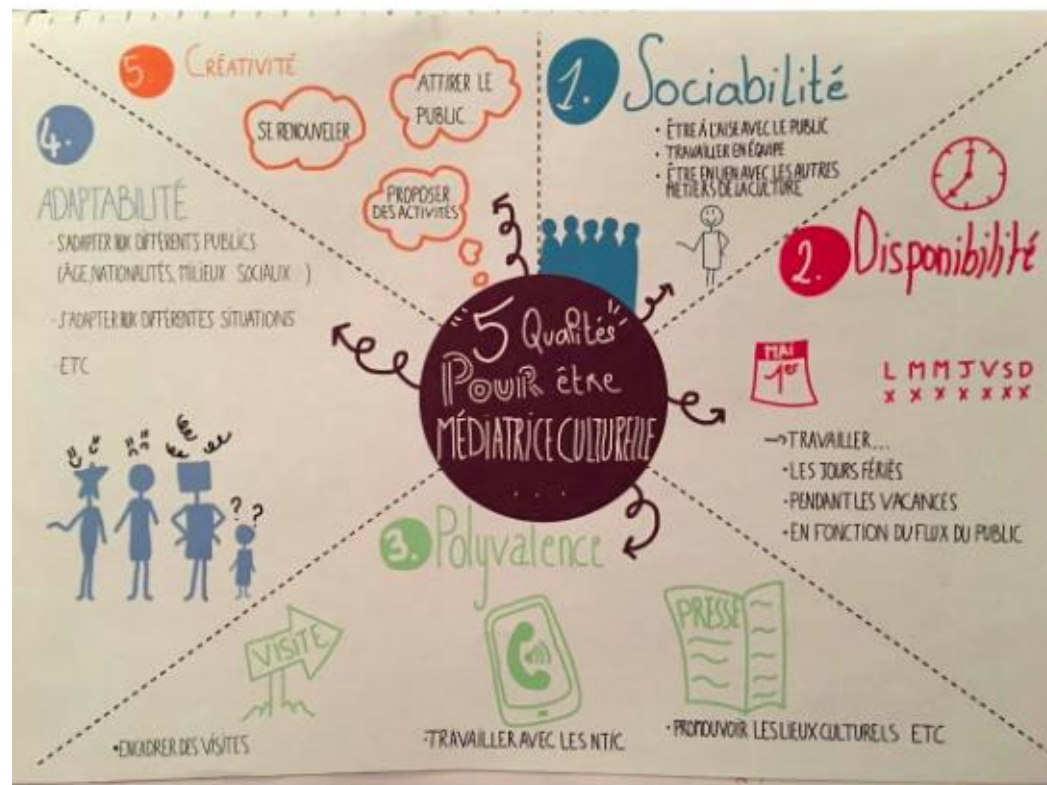 5 Qualités
POUR être
MÉDIATRICE CULTURELLE
...
1. Sociabilité
• ÊTRE À L'AISE AVEC LE PUBLIC
• TRAVAILLER EN ÉQUIPE
• ÊTRE EN LIEN AVEC LES AUTRES
MÉTIERS DE LA CULTURE
2. Disponibilité
MAI
1er
L M M J V S D
x x x x x x x
→ TRAVAILLER...
• LES JOURS FÉRIÉS
• PENDANT LES VACANCES
• EN FONCTION DU FLUX DU PUBLIC
3. Polyvalence
VISITE
• ENCADRER DES VISITES
• TRAVAILLER AVEC LES NTIC
PRESSE
• PROMOUVOIR LES LIEUX CULTURELS ETC
4.
ADAPTABILITÉ
- S'ADAPTER AUX DIFFÉRENTS PUBLICS
(ÂGE, NATIONALITÉS, MILIEUX SOCIAUX )
- S'ADAPTER AUX DIFFÉRENTES SITUATIONS
- ETC
? ?
5. CRÉATIVITÉ
SE RENOUVELER
ATTIRER LE
PUBLIC...
PROPOSER
DES ACTIVITÉS